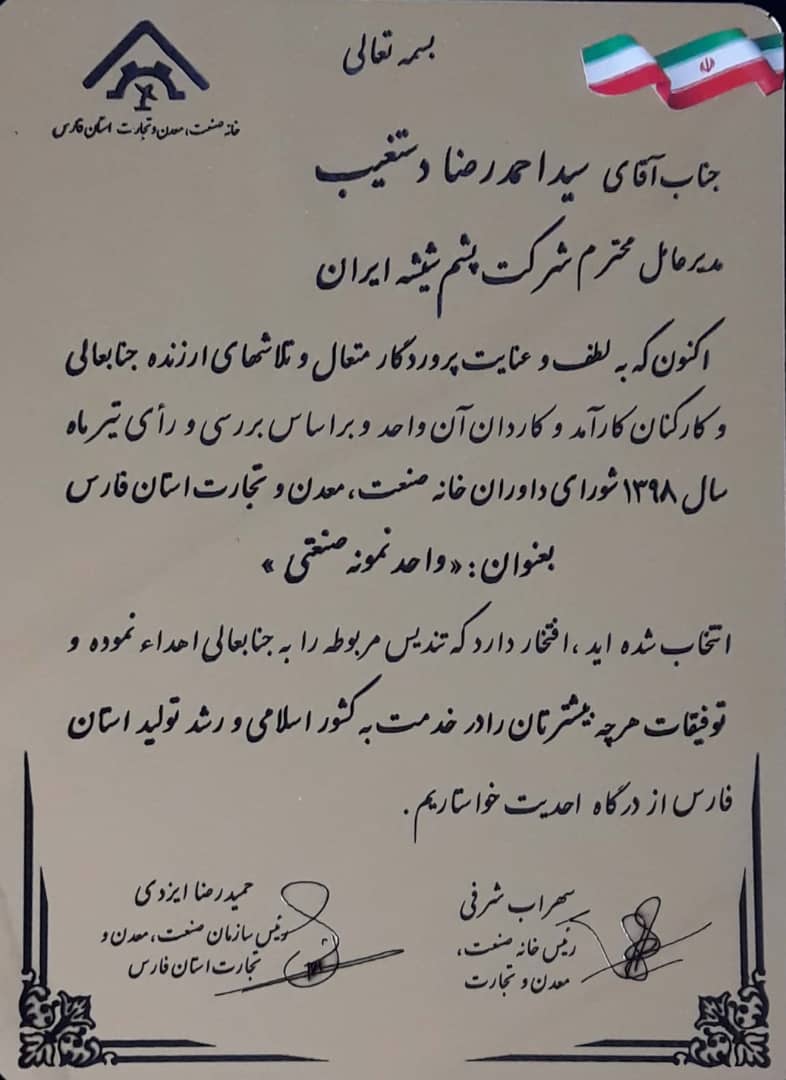 بسمه تعالی
خانه صنعت، معدن و تجارت استان فارس
جناب آقای سید احمد رضا دستغیب
مدیرعامل محترم شرکت پشم شیشه ایران
اکنون که به لطف و عنایت پروردگار متعال و تلاشهای ارزنده جنابعالی
و کارکنان کارآمد و کاردان آن واحد و براساس بررسی و رأی تیر ماه
سال ۱۳۹۸ شورای داوران خانه صنعت، معدن و تجارت استان فارس
بعنوان: «واحد نمونه صنعتی»
انتخاب شده اید، افتخار دارد که تندیس مربوطه را به جنابعالی اهداء نموده و
توفیقات هرچه بیشترتان را در خدمت به کشور اسلامی و رشد تولید استان
فارس از درگاه احدیت خواستاریم.
سهراب شرفی
رئیس خانه صنعت،
معدن و تجارت
حمیدرضا ایزدی
رئیس سازمان صنعت، معدن و
تجارت استان فارس